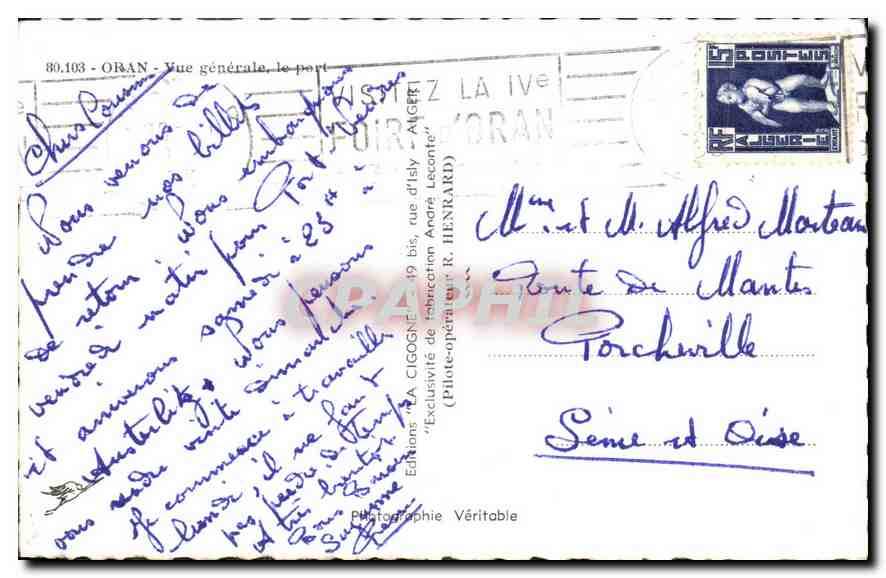 80.103 - ORAN - Vue générale, le port
Chers Cousins
Nous venons de
prendre nos billets
de retour ; nous embarquons
vendredi matin pour Port-Vendres
et arriverons samedi à 23H à
Austerlitz. Nous pensons
vous rendre visite dimanche.
Je commence à travailler
lundi, il ne faut
pas perdre de temps
A très bientôt
Suzanne
VISITEZ LA IVe
FOIRE d'ORAN
5F
POSTES
RF
ALGERIE
Mme et M. Alfred Morteau
Route de Mantes
Porcheville
Seine et Oise
Editions "LA CIGOGNE" 49 bis, rue d'Isly - ALGER
"Exclusivité de fabrication André Leconte"
(Pilote-opérateur R. HENRARD)
Photographie Véritable
CPAPHIL